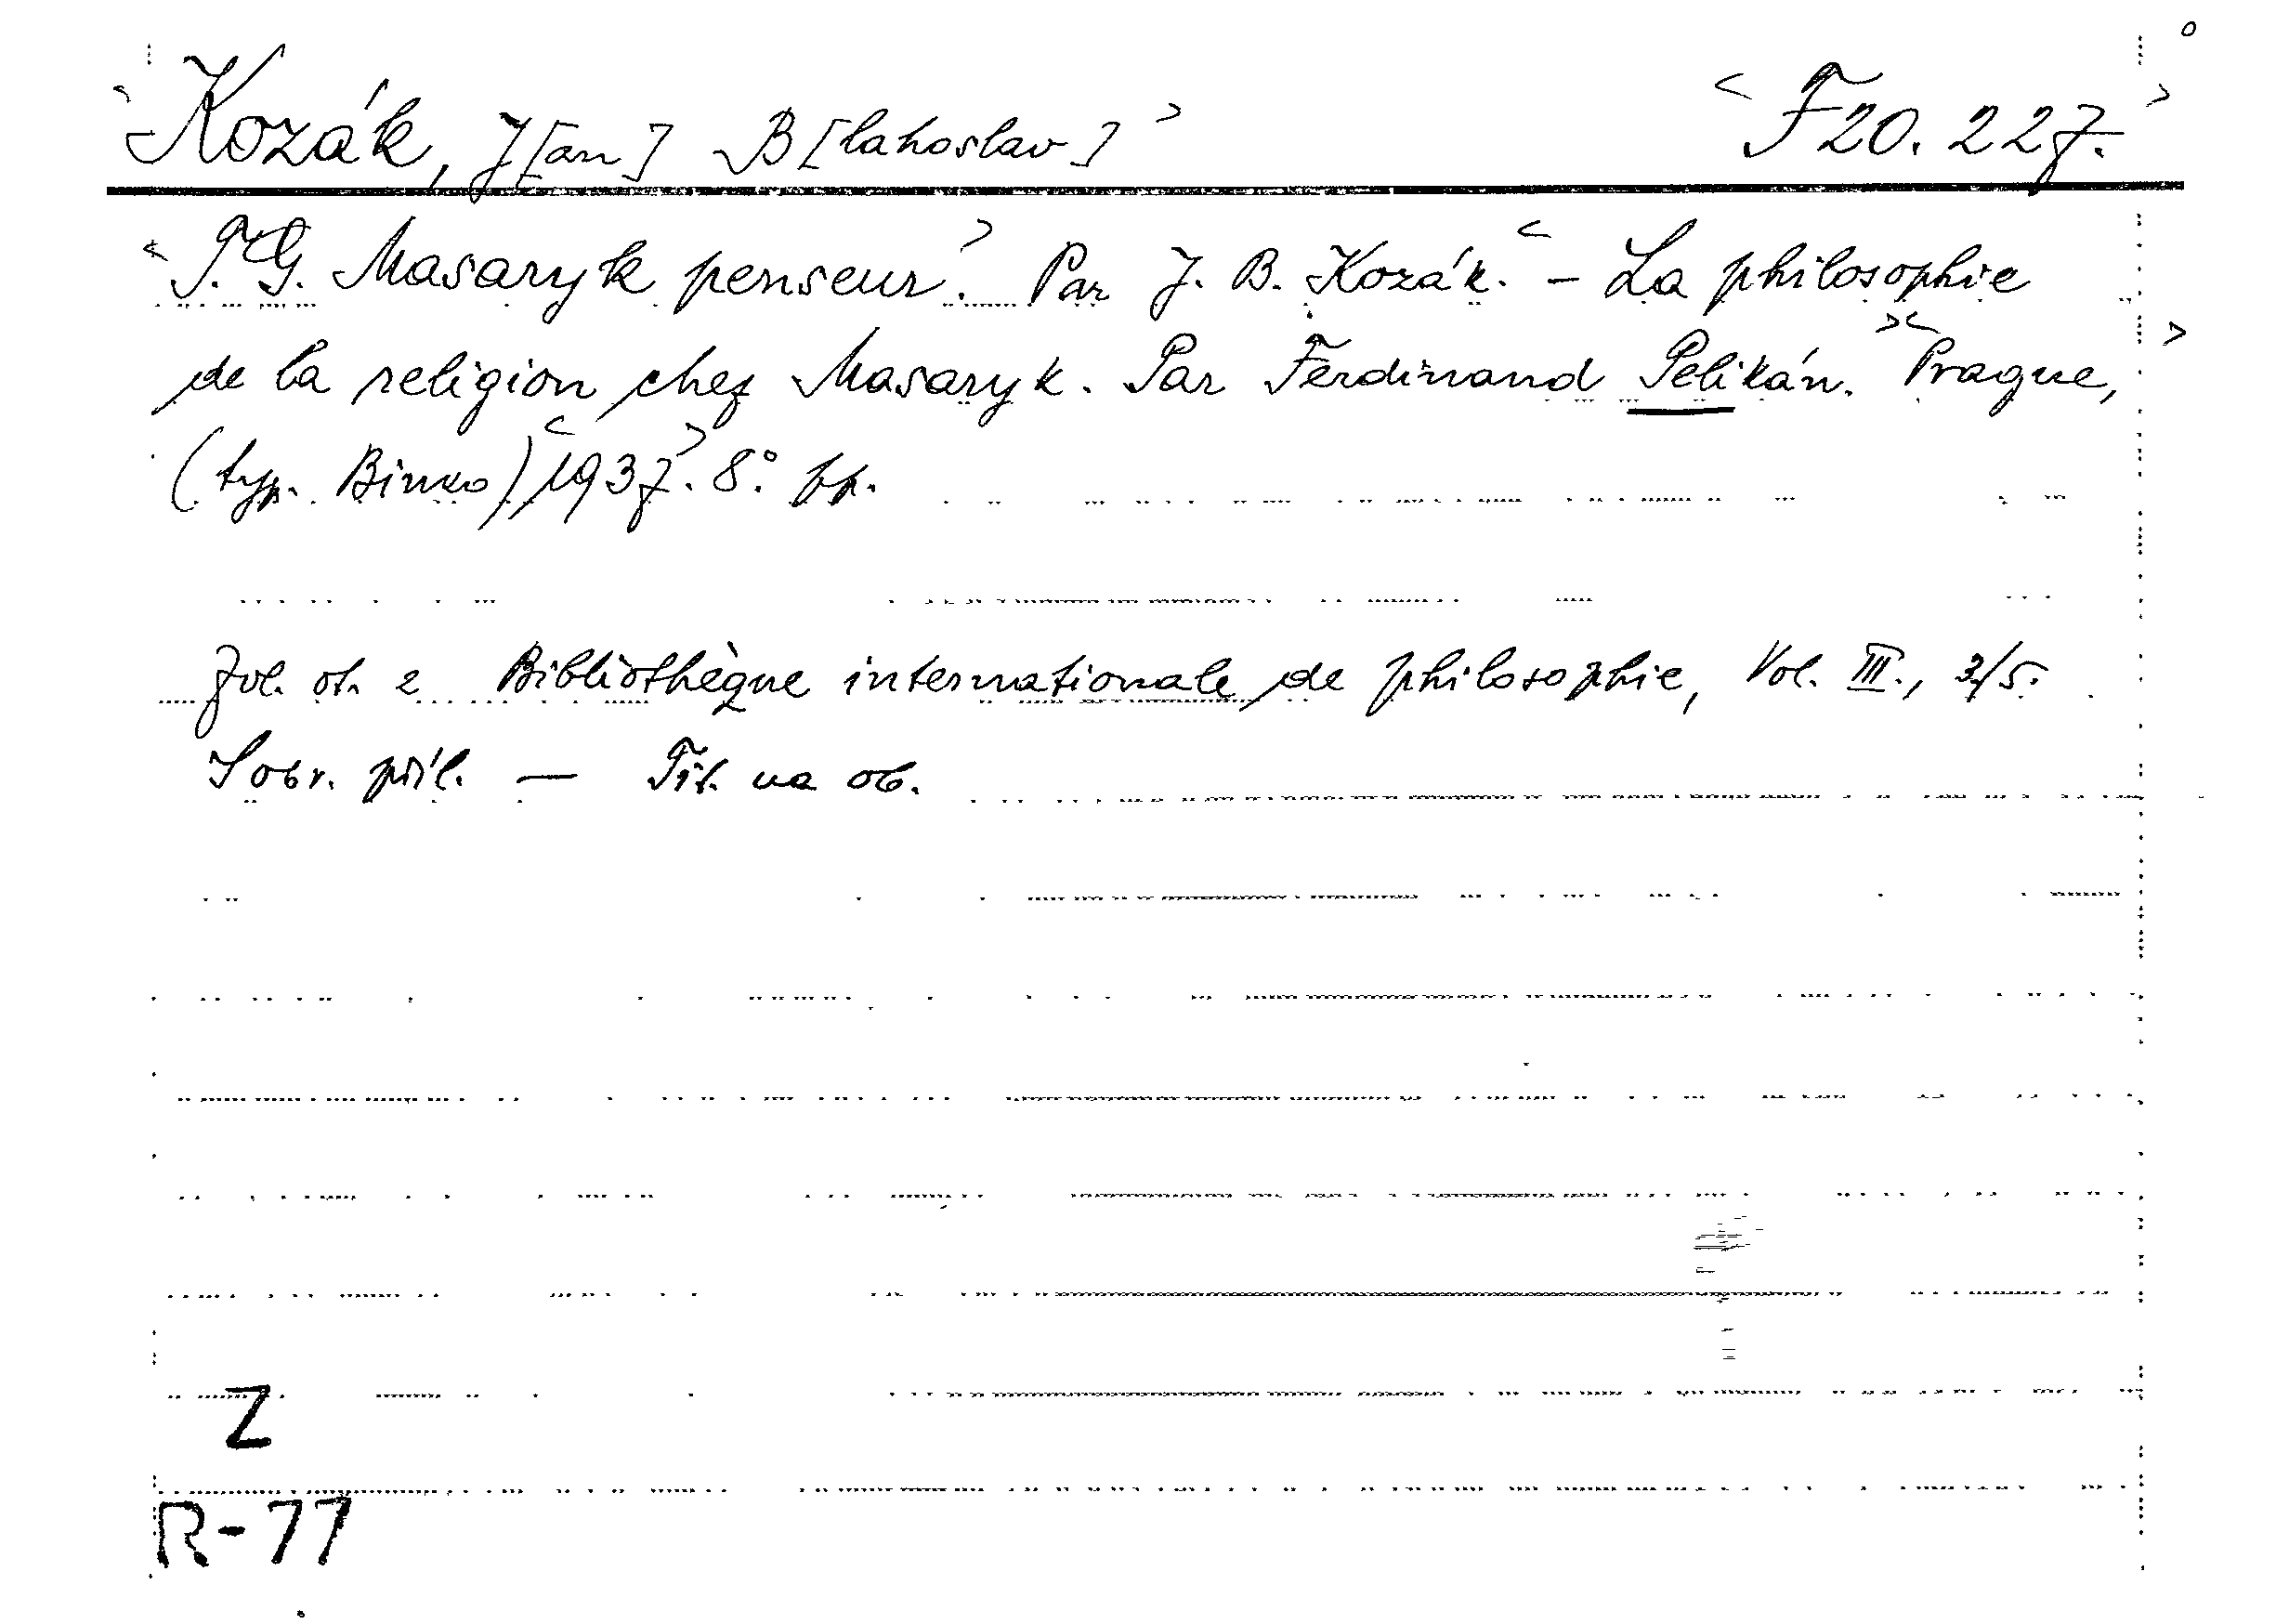 Kozák, J[an] B[lahoslav] F 20.227.
T. G. Masaryk penseur. Par J. B. Kozák. – La philosophie
de la religion chez Masaryk. Par Ferdinand Pelikán. Prague,
(typ. Binko) 1937. 8° pp.
Zvl. ot. z Bibliothèque internationale de philosophie, Vol. III., 3/5.
S obr. příl. — Tit. na ob.
Z
R-77